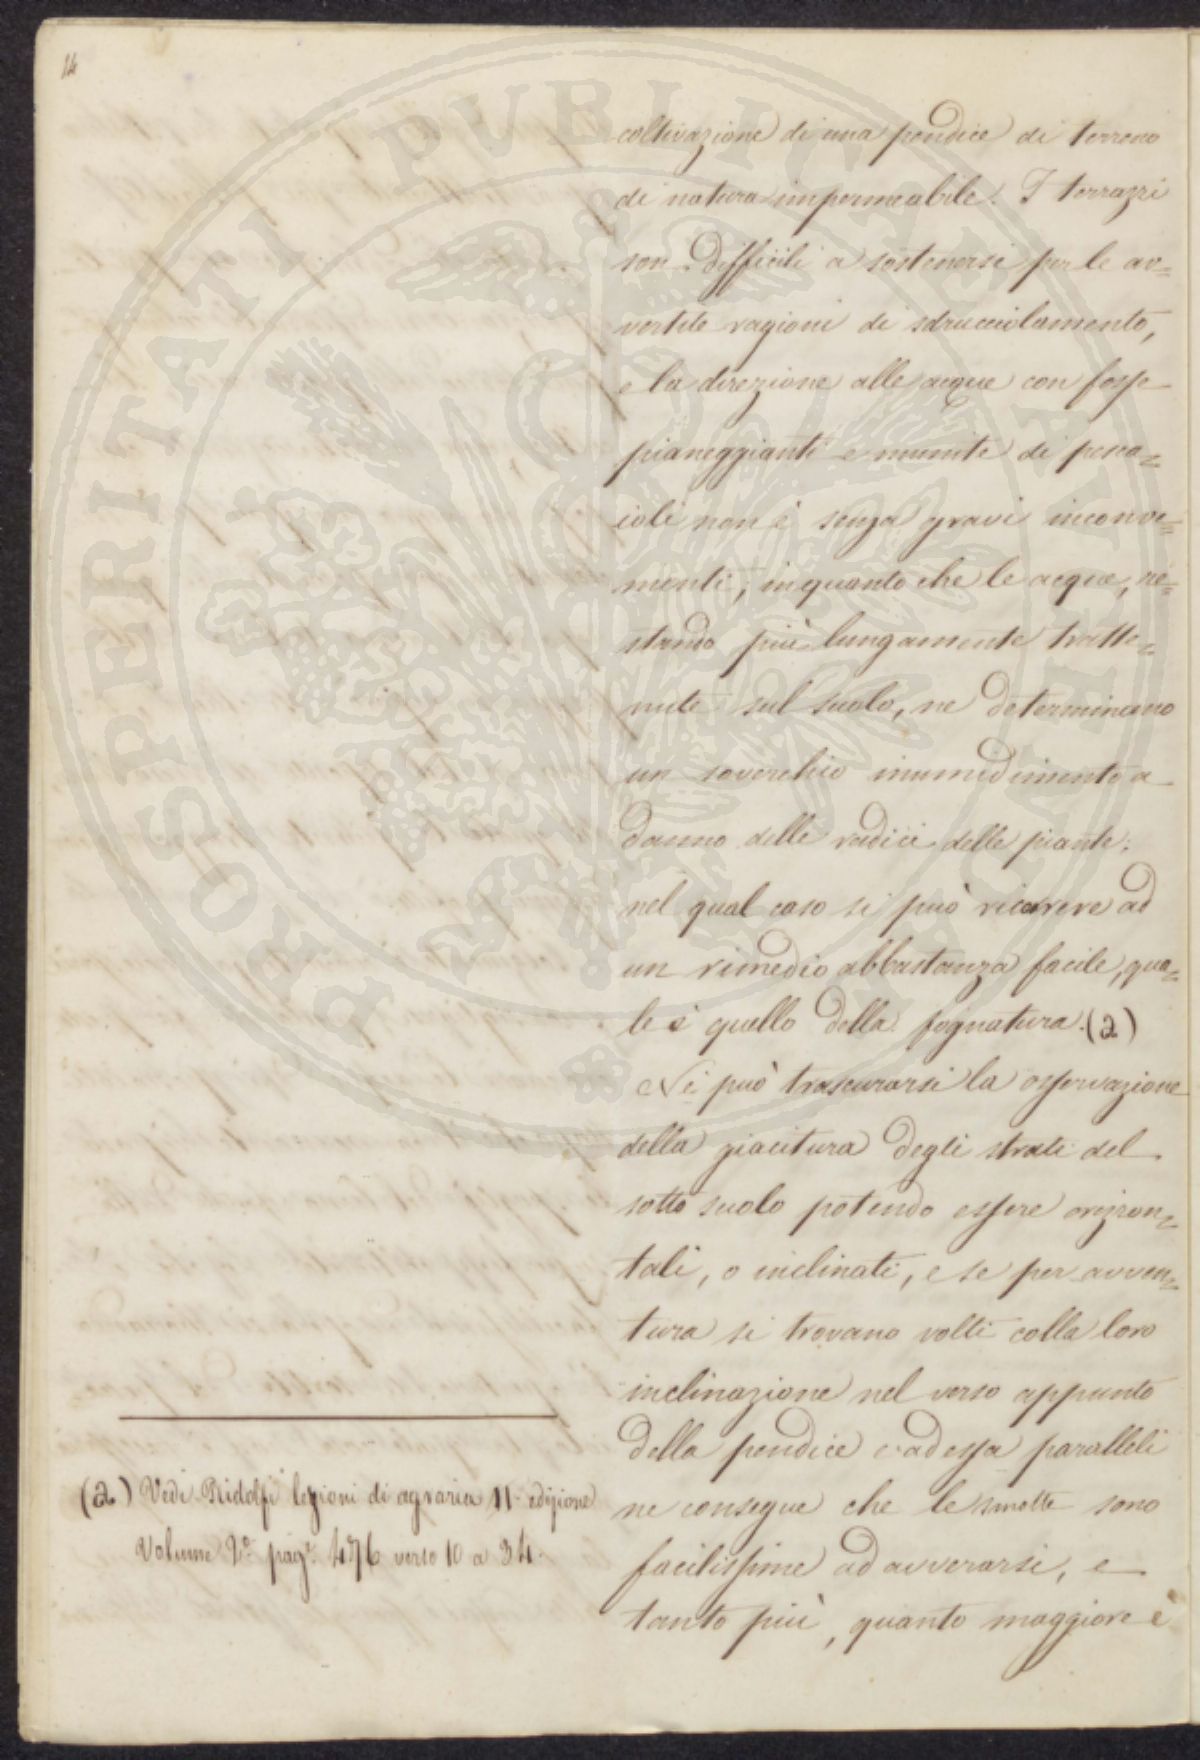 14
coltivazione di una pendice di terreno
di natura impermeabile. I terrazzi
son difficili a sostenersi per le av=
vertite ragioni di sdrucciolamento,
e la direzione alle acque con fosse
pianeggianti e munite di pesca=
ioli non è senza gravi inconve=
nienti, in quanto che le acque, re=
stando più lungamente tratte=
nute sul suolo, ne determinano
un soverchio inumidimento a
danno delle radici delle piante:
nel qual caso si può ricorrere ad
un rimedio abbastanza facile, qua=
le è quello della fognatura. (a)
Nè può trascurarsi la osservazione
della giacitura degli strati del
sotto suolo potendo essere orizzon=
tali, o inclinati, e se per avven=
tura si trovano volti colla loro
inclinazione nel verso appunto
della pendice e ad essa paralleli
ne consegue che le smotte sono
facilissime ad avverarsi, e
tanto più, quanto maggiore è
(a) Vedi Ridolfi lezioni di agraria II edizione
Volume 2º pagª 476 verso 10 a 34.
PROSPERITATI PUBLICAE AUGENDAE